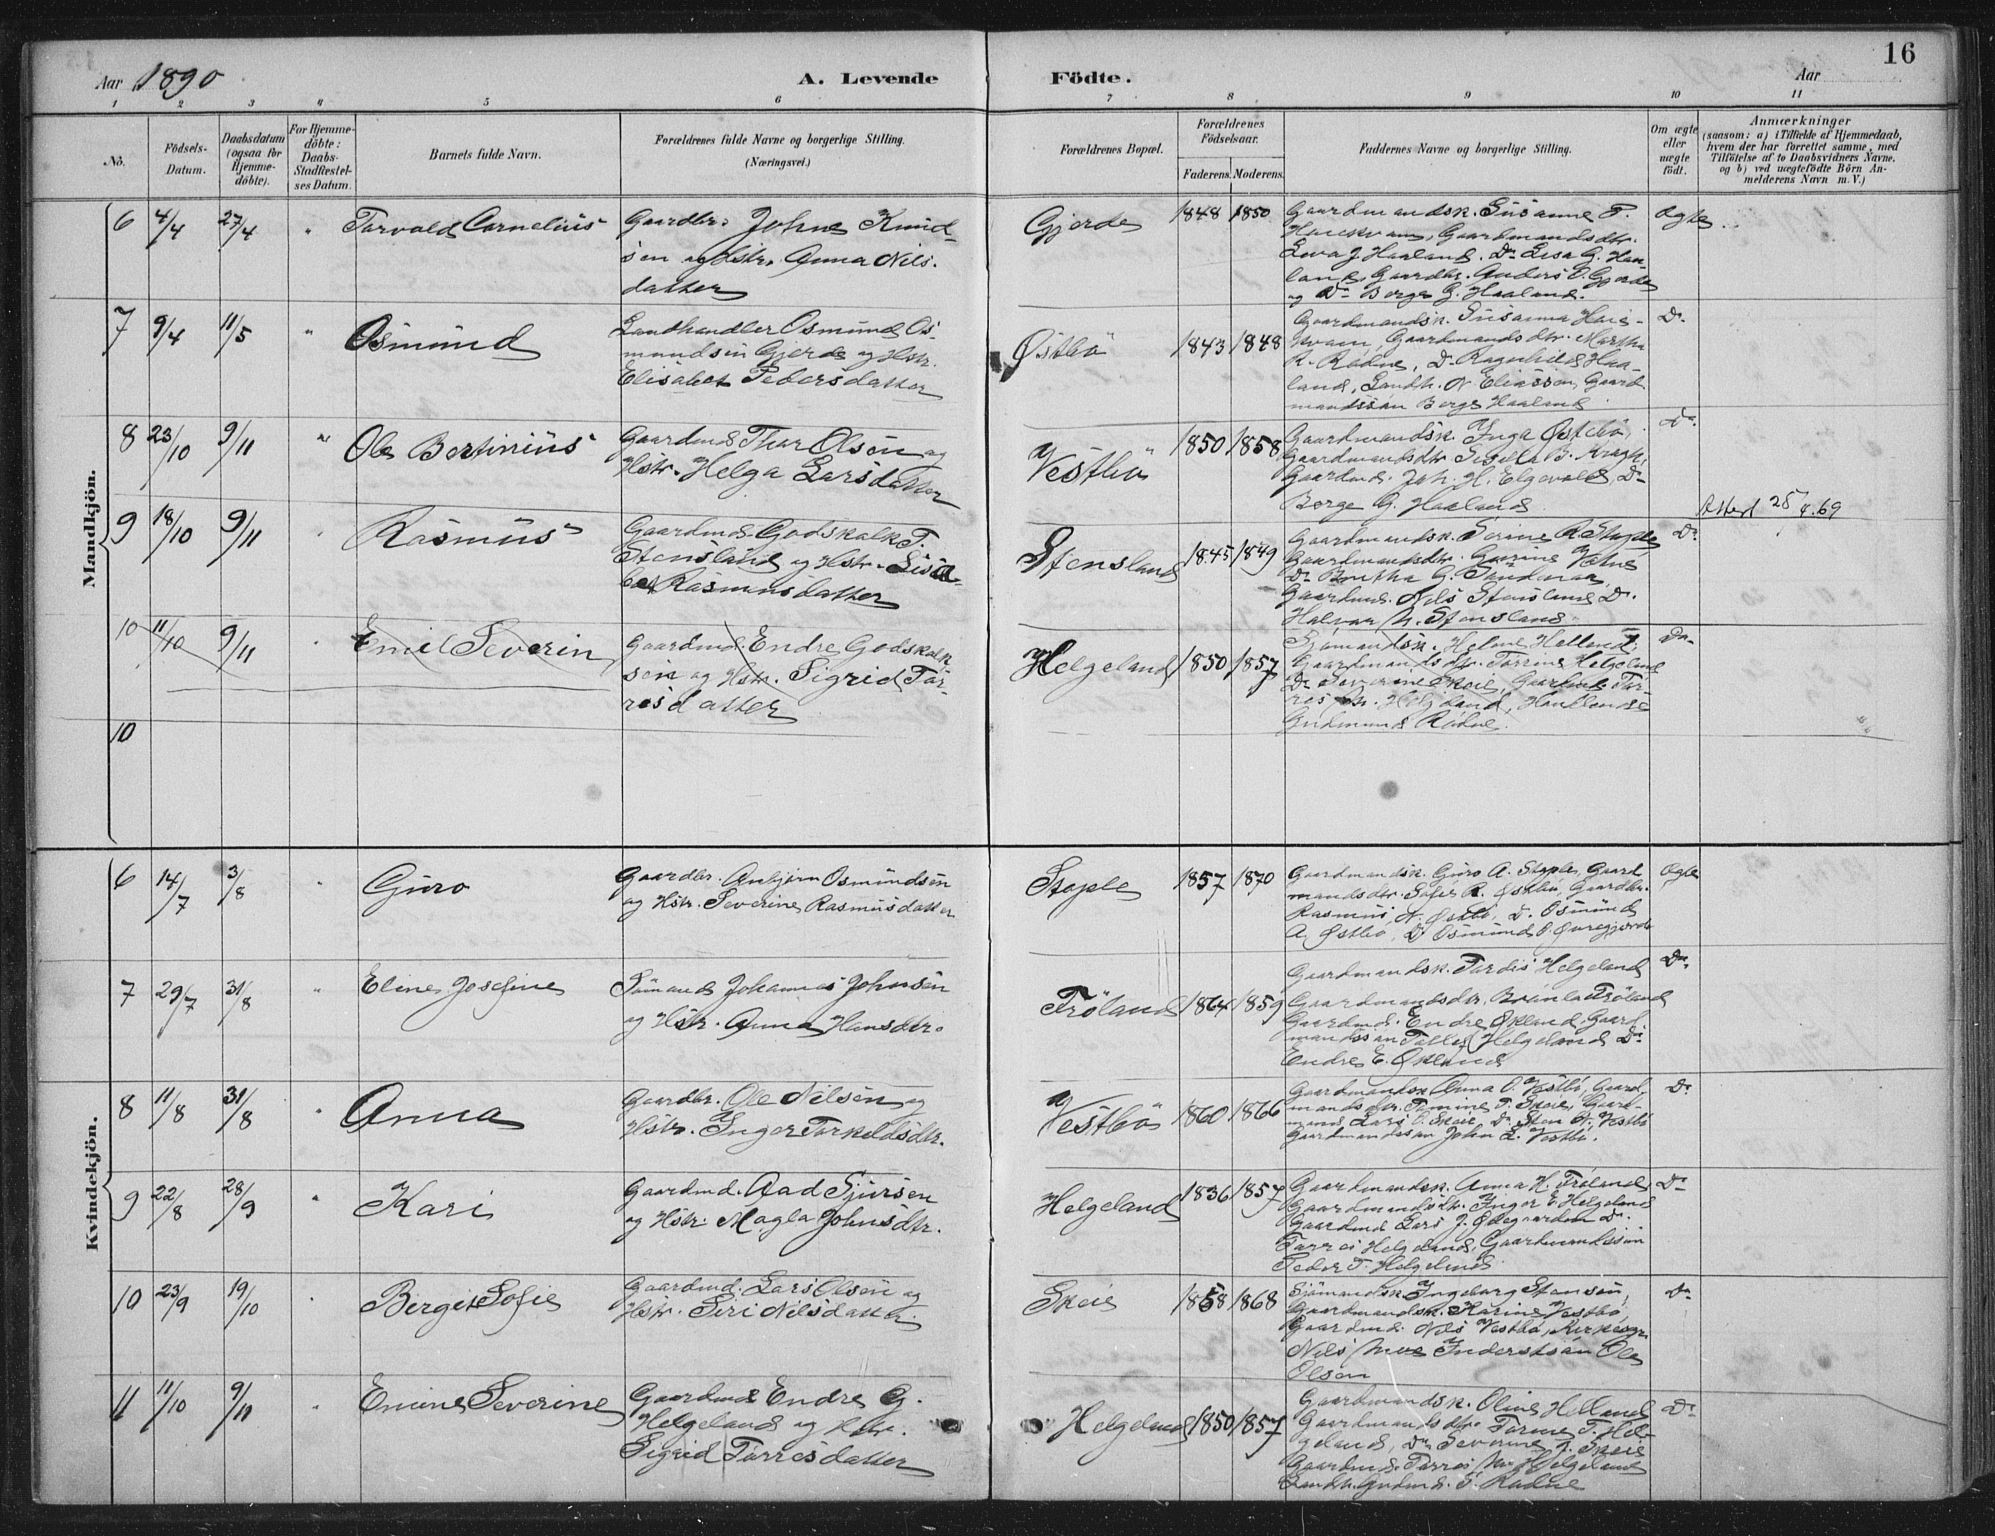 16
Aar 1890
A. Levende Födte.
Aar
1 2 3 4 5 6 7 8 9 10 11
No.
Födsels-
Datum.
Daabsdatum
(ogsaa for
Hjemme-
döbte).
For Hjemme-
döbte:
Daabs-
Stadfæstel-
ses Datum.
Barnets fulde Navn.
Forældrenes fulde Navne og borgerlige Stilling.
(Næringsvei.)
Forældrenes Bopæl.
Forældrenes
Födselsaar.
Faderens. Moderens.
Faddernes Navne og borgerlige Stilling.
Om ægte
eller
uægte
födt.
Anmærkninger
(saasom: a) i Tilfælde af Hjemmedaab,
hvem der har forrettet samme, med
Tilföielse af to Daabsvidners Navne,
og b) ved uægtefödte Börn An-
melderens Navn m. V.)
Mandkjön.
6 4/4 27/4 " Torvald Cornelius
Gaardbr. Johne Knud-
sen og Hstr. Anna Nils-
datter
Gjerde 1848 1850
Gaardmandsk. Susanne T.
Gaardmandsdtr.
Haaland. Do Lisa G. Haa-
land, Gaardbr. Anders O. Gjerde
og Do Borge G. Haaland.
Ægte
7 9/4 11/5 " Osmund
Landhandler Osmund Os-
mundsen Gjerde og Hstr.
Elisabet Pedersdatter
Östbö 1843 1848
Gaardmandsk. Susanna Haie-
kvam, Gaardmandsdtr. Martha
R. Rödne, Do Ragnhild Haa-
land, Landh. N. Eliassen, Gaard-
mandssön Borge Haaland
Do
8 23/10 9/11 " Ole Bertinius
Gaardmd. Thor Olsen og
Hstr. Helga Larsdatter
Vestbö 1850 1858
Gaardmandsk. Inga Östebö,
Gaardmandsdtr B. Kragh,
Gaardmd. Joh. H. Elgevold, Do
Borge G. Haaland
Do
9 18/10 9/11 Rasmus
Gaardmd. Godskalk T.
Stensland og Hstr. Lisa-
bet Rasmusdatter
Stensland 1845 1849
Gaardmandsk. Serine R. Stople
Gaardmandsdtr. Gurine
Do Bertha G.
Gaardmd. Nils Stensland Do.
Halvar N. Stensland
Do
Attest 25/4.69
10 11/10 9/11 Emil Severin
Gaardmd. Endre Godskalk-
sen og Hstr. Sigrid Tor-
resdatter
Helgeland 1850 1857
Sjömandsk. Helland,
Gaardmandsdtr. Torrine Helgeland
Do Severine Skeie, Gaardmd. Tor-
res Helgeland,
Gudmund Rödne.
Do
10
Kvindekjön.
6 14/7 3/8 " Guro
Gaardbr. Anbjörn Osmundsen
og Hstr. Severine Rasmusdatter
Stople 1857 1870
Gaardmandsk. Guro A. Stople, Gaard-
mandsdtr. Sofie R. Östbö, Gaardbr.
Rasmus N. Östbö, Do. Osmund
A. Östbö, Do Osmund O. Öuregjerde
Ægte
7 29/7 31/8 " Eline Josefine
Sömand Johannes Johnsen
og Hstr. Anna Hansdtr.
Fröland 1864 1859
Gaardmandsk. Tordis Helgeland
Gaardmandsdtr. Fröland
Gaardmd. Endre Ökland, Gaard-
mandssön Helgeland Do
Endre E. Ökland
Do
8 11/8 31/8 " Anna
Gaardbr. Ole Nilsen og
Hstr. Inger Torkildsdtr.
Vestbö 1860 1866
Gaardmandsk Anna O. Vestbö, Gaard-
mandsdtr. Tomine T. Skeie, Gaard-
mand Lars O. Skeie, Do Sten N. Vestbö
Gaardmandssön John L. Vestbö.
Do
9 22/8 28/9 " Kari
Gaardmd. Aad Sjursen
og Hstr. Magla Johnsdtr.
Helgeland 1836 1857
Gaardmandsk. Anna H. Fröland
Gaardmandsdtr. Inger E. Helgeland
Gaardmd Lars J. Ödegaarden Do.
Torres Helgeland, Gaardmandssön
Peder T. Helgeland
Do
10 23/9 19/10 Bergit Sofie
Gaardmd. Lars Olsen og
Hstr. Siri Nilsdatter.
Skeie 1858 1868
Sjömandsk. Ingeborg Stensen,
Gaardmandsk. Karine Vestbö,
Gaardmd. Nils Vestbö, Kirkesgr.
Nils Moe Inderstsön Ole
Olsen
Do
11 11/10 9/11 Emine Severine
Gaardmd Endre G.
Helgeland og Hstr.
Sigrid Torresdatter
Helgeland 1850 1857
Gaardmandsk. Oline Helland
Gaardmandsdtr Torine T. Hel-
geland, Do Severine T. Skeie
Gaardmd. Torres Helgeland
Landh. Gudmd. T. Rödne
Do